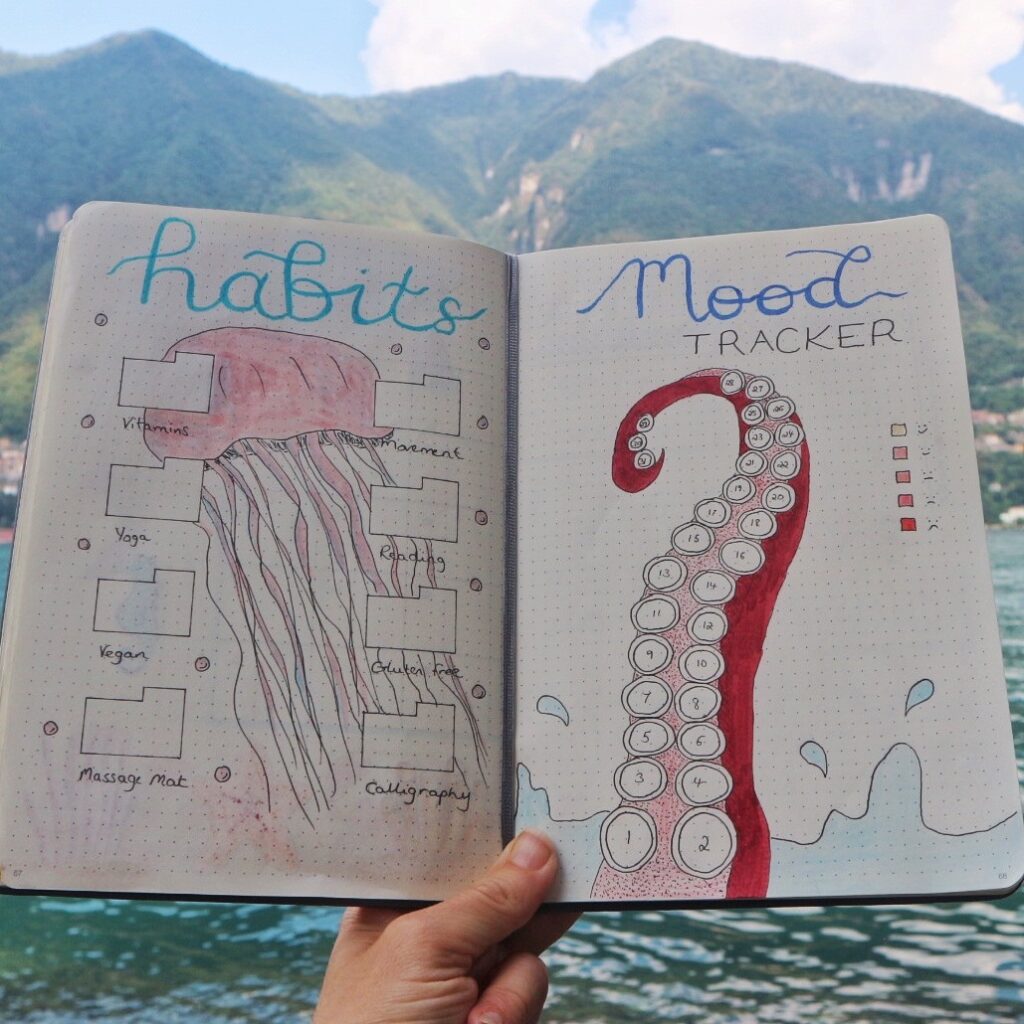 habits
Vitamins
Movement
Yoga
Reading
Vegan
Gluten free
Massage Mat
Calligraphy
67
Mood
TRACKER
28 27
25 26
23 24
21 22
19 20
17 18
15 16
13 14
11 12
9 10
7 8
5 6
3 4
1 2
68